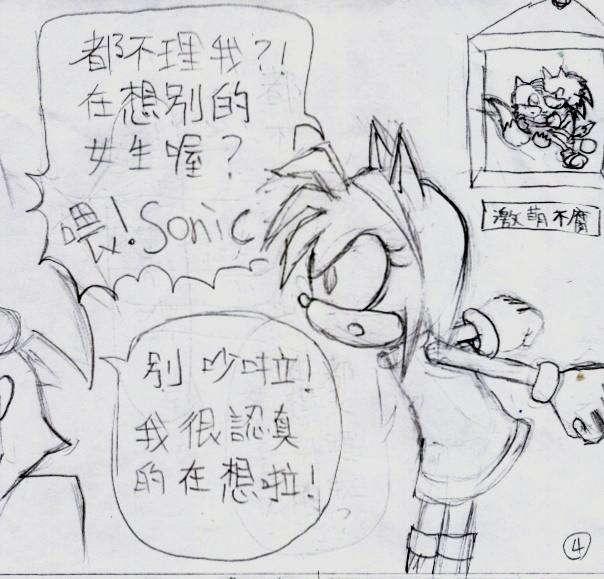 都不理我?!
在想別的
女生喔?
喂!Sonic
激萌不腐
別吵啦!
我很認真
的在想啦!
4